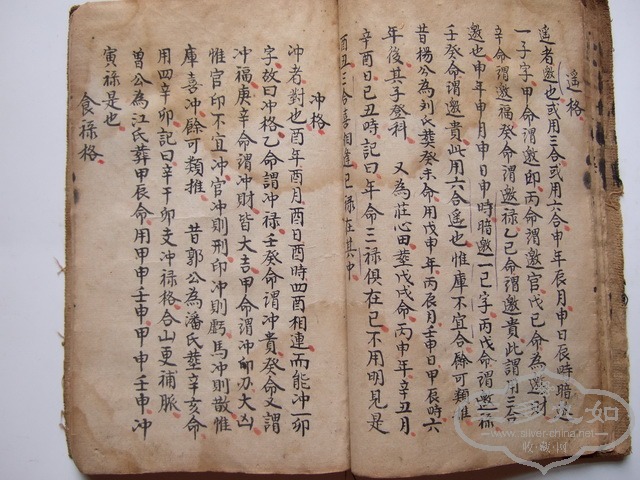 遙格
遙者邀也或用三合或用六合申年辰月申日辰時暗邀
一子字甲命謂邀印丙命謂邀官戊己命為邀財
辛命謂邀福癸命謂邀禄乙己命謂邀貴此謂用三合
邀也申年申月申日申時暗邀一己字丙戊命謂邀禄
壬癸命謂邀貴此用六合遙也惟庫不宜合餘可類推
昔楊公為刘氏葬癸未命用戊申年丙辰月壬申日甲辰時六
年後其子登科 又為莊心田塟戊戌命丙申年辛丑月
辛酉日己丑時記曰年命三禄俱在巳不用明見是
酉丑三合喜相逢巳禄在其中
冲格
冲者對也酉年酉月酉日酉時四酉相連而能冲一卯
字故曰冲格乙命謂冲禄壬癸命謂冲貴癸命又謂
冲福庚辛命謂冲財皆大吉甲命謂冲卯刃大凶
惟官印不宜冲官冲則刑印冲則虧馬冲則散惟
庫喜冲餘可類推 昔郭公為潘氏塟辛亥命
用四辛卯記曰辛干卯支冲禄格合山更補脈
曾公為江氏葬甲辰命用甲申壬申甲申壬申冲
寅禄是也
食禄格
www.silver-china.net
收藏网